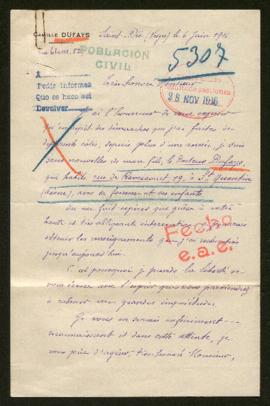 CAMILLE DUFAYS
Saint-Dié, (Vosges) le 6 Juin 1916
POBLACIÓN
CIVIL
5307
A
Pedir informes
Que se hace así
Devolver
28 NOV 1916
J'ai l'honneur de vous exposer
que malgré les démarches que j'ai faites de
différents côtés, depuis plus d'un année, je
suis sans nouvelles de mon fils, le Docteur Dufays,
qui habite, rue de 19, à St Quentin
(Aisne), avec sa femme et ses enfants.
On me fait espérer que grâce à votre
haute et très obligeante intervention, je pourrais
obtenir les renseignements que j'ai
jusqu'à aujourd'hui.
Fecho
e.a.e.
C'est pourquoi je prends la liberté de
vous écrire avec l'espoir que vous parviendrez
à calmer ma grande inquiétude.
Je vous en serais infiniment
reconnaissant et dans cette attente, je
vous prie d'agréer, très honoré Monsieur,